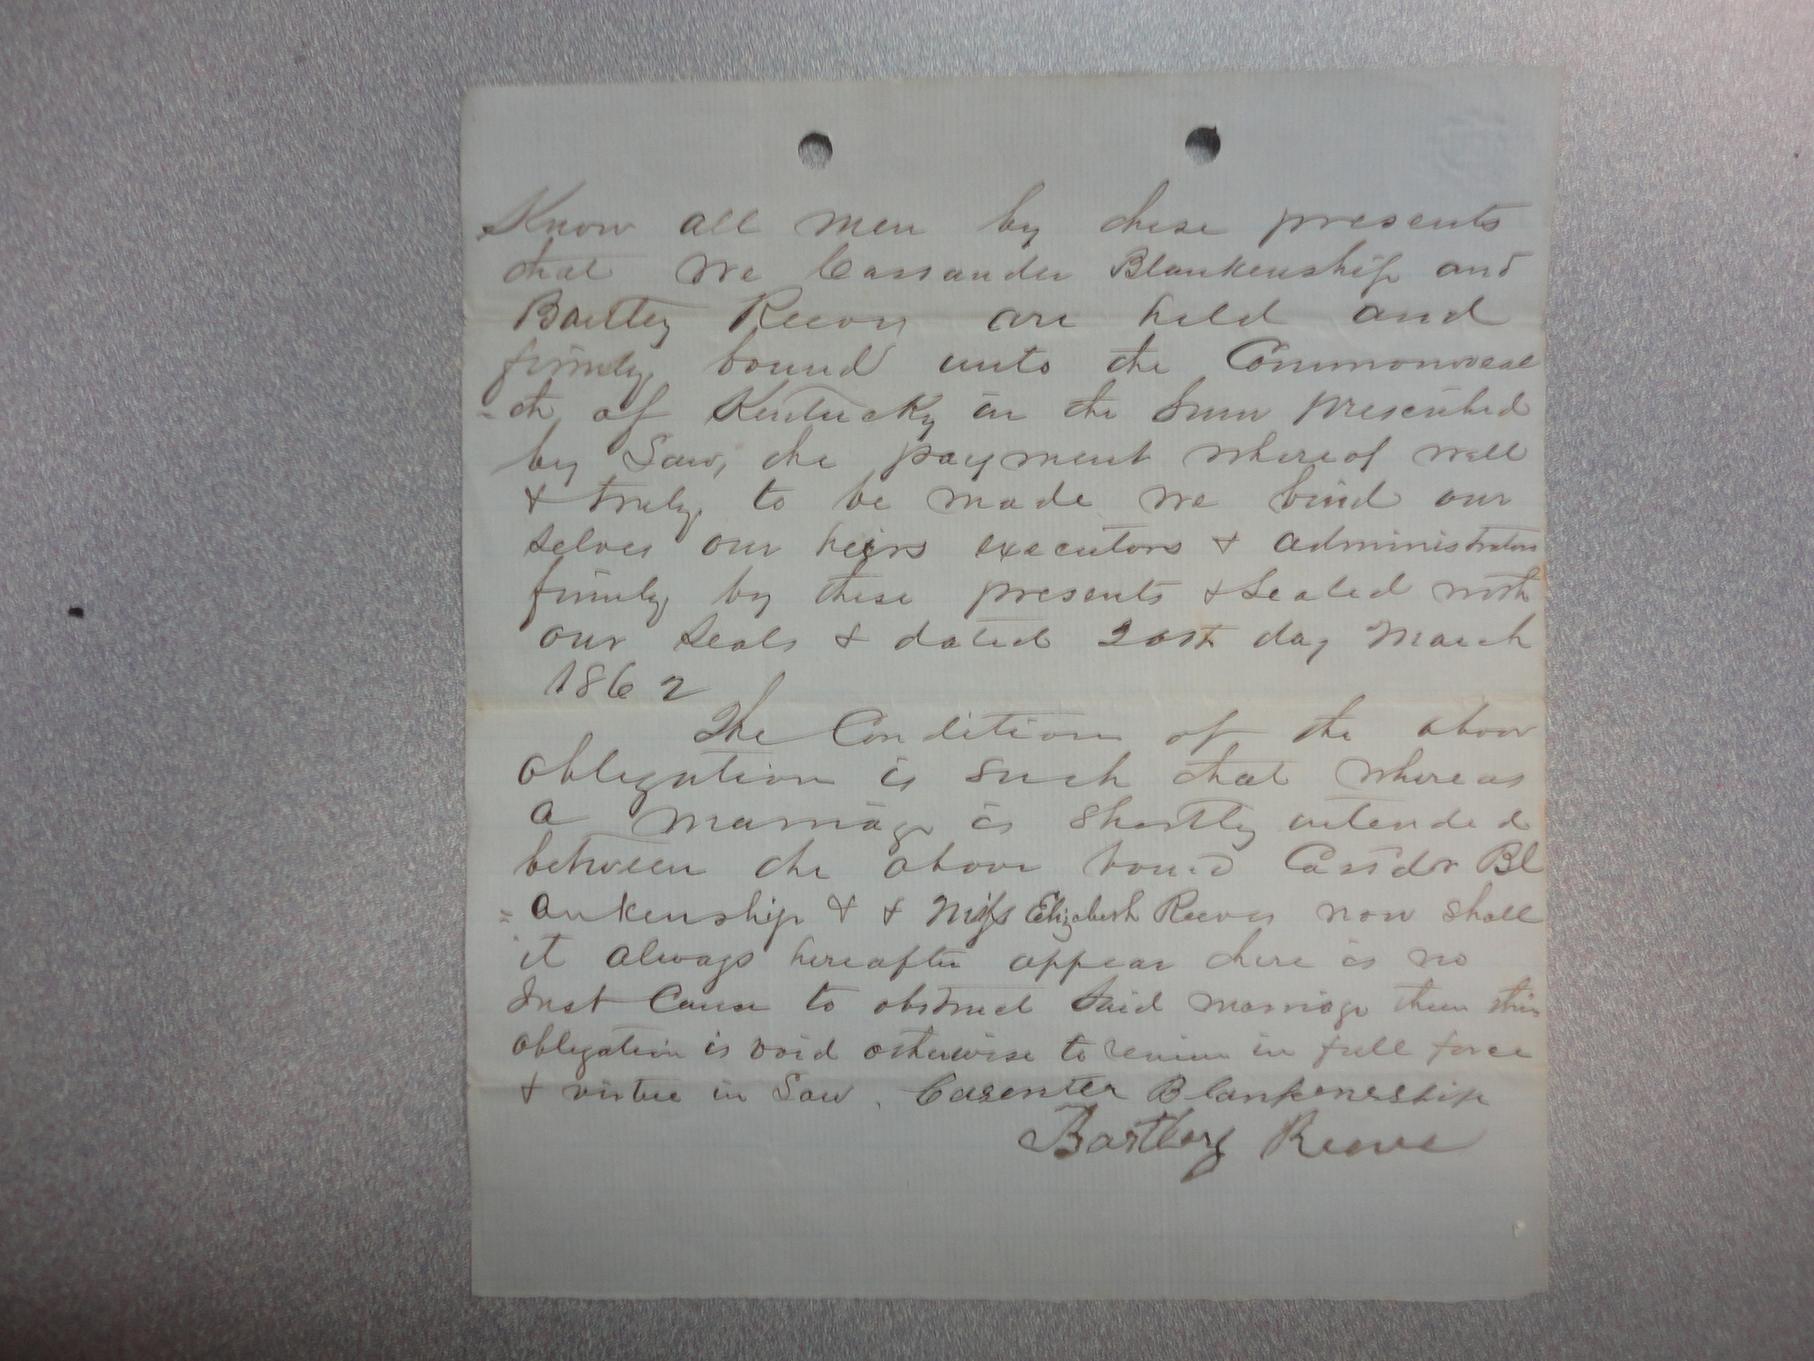 Know all men by these presents
that we Cassander Blankenship and
Bartley Reeves are held and
firmly bound unto the Commonweal
-th of Kentucky in the Sum prescribed
by Law, the payment whereof well
& truly to be made we bind our
selves our heirs executors & administrators
firmly by these presents & Sealed with
our Seals & dated 20th day March
1862
The Condition of the above
obligation is such that whereas
a marriage is shortly intended
between the above bound Cassdr Bl
=ankenship & & Miss Elizabeth Reeves now shall
it always hereafter appear there is no
Just Cause to obstruct Said marriage then this
obligation is void otherwise to remain in full force
& virtue in Law. Casenter Blankenership
Bartley Reeve